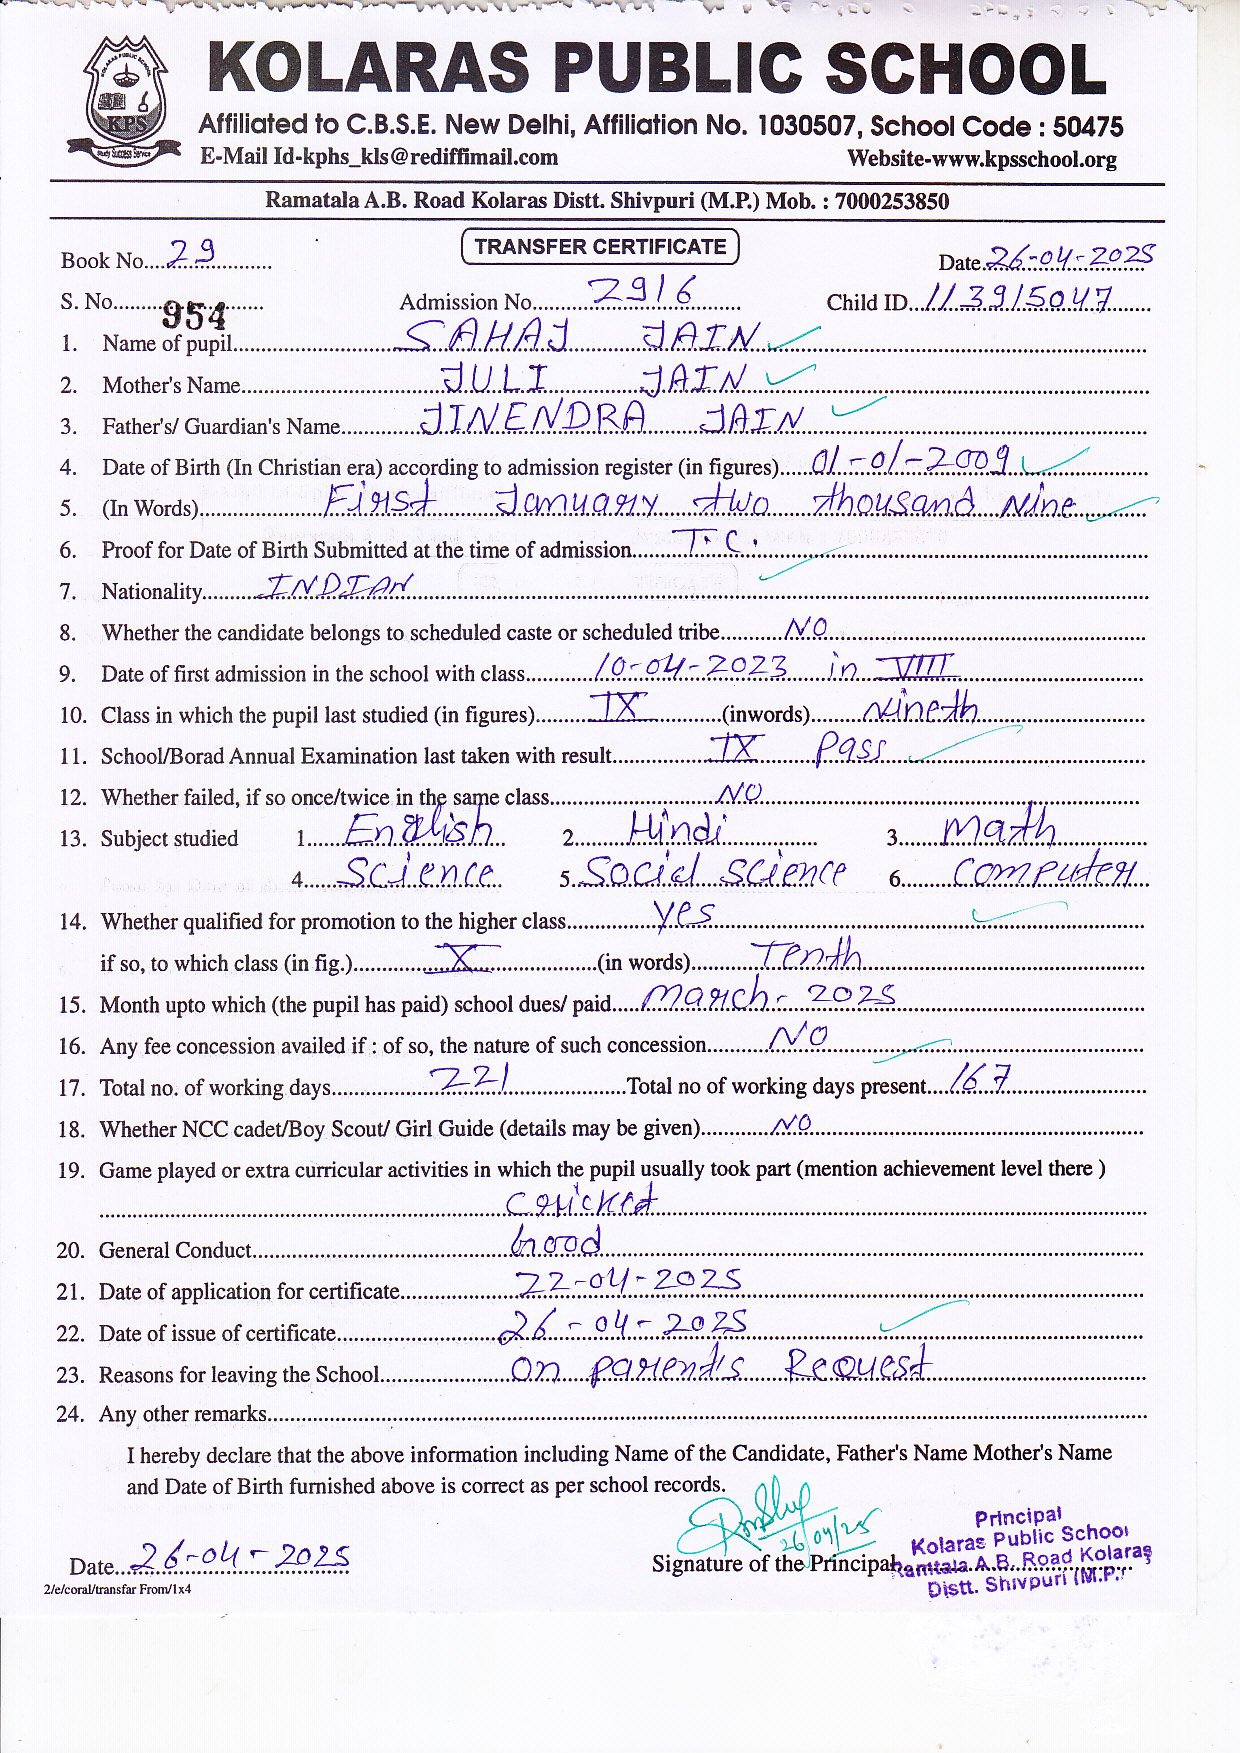 KOLARAS PUBLIC SCHOOL
KOLARAS PUBLIC SCHOOL
KPS
Study Success Service
Affiliated to C.B.S.E. New Delhi, Affiliation No. 1030507, School Code : 50475
E-Mail Id-kphs_kls@rediffimail.com Website-www.kpsschool.org
Ramatala A.B. Road Kolaras Distt. Shivpuri (M.P.) Mob. : 7000253850
Book No....29 TRANSFER CERTIFICATE Date 26-04-2025
S. No. 954 Admission No. 2916 Child ID 113915047
1. Name of pupil SAHAJ JAIN
2. Mother's Name JULI JAIN
3. Father's/ Guardian's Name JINENDRA JAIN
4. Date of Birth (In Christian era) according to admission register (in figures) 01-01-2009
5. (In Words) First January two thousand Nine
6. Proof for Date of Birth Submitted at the time of admission T.C.
7. Nationality INDIAN
8. Whether the candidate belongs to scheduled caste or scheduled tribe NO
9. Date of first admission in the school with class 10-04-2023 in VIII
10. Class in which the pupil last studied (in figures) IX (inwords) Nineth
11. School/Borad Annual Examination last taken with result IX Pass
12. Whether failed, if so once/twice in the same class NO
13. Subject studied 1. English 2. Hindi 3. Math
4. Science 5. Social science 6. Computer
14. Whether qualified for promotion to the higher class yes
if so, to which class (in fig.) X (in words) Tenth
15. Month upto which (the pupil has paid) school dues/ paid March-2025
16. Any fee concession availed if : of so, the nature of such concession NO
17. Total no. of working days 221 Total no of working days present 167
18. Whether NCC cadet/Boy Scout/ Girl Guide (details may be given) NO
19. Game played or extra curricular activities in which the pupil usually took part (mention achievement level there )
Cricket
20. General Conduct Good
21. Date of application for certificate 22-04-2025
22. Date of issue of certificate 26-04-2025
23. Reasons for leaving the School On parent's Request
24. Any other remarks
I hereby declare that the above information including Name of the Candidate, Father's Name Mother's Name
and Date of Birth furnished above is correct as per school records.
26/04/25
Date 26-04-2025 Signature of the Principal
Principal
Kolaras Public School
Ramtala A.B. Road Kolaras
Distt. Shivpuri (M.P.)
2/e/coral/transfar From/1x4